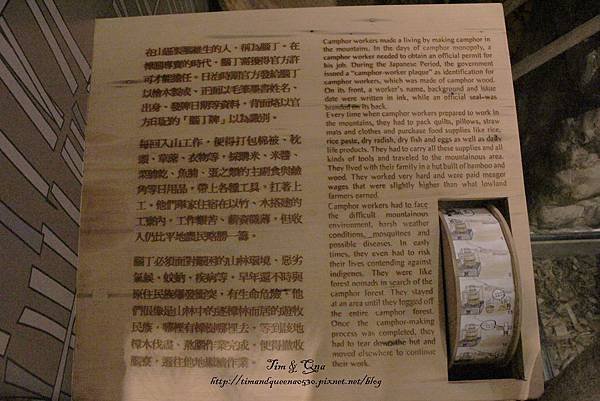 在山區製腦維生的人，稱為腦丁。在
樟腦專賣的時代，腦丁需獲得官方許
可才能擔任。日治時期官方發給腦丁
以檜木製成，正面以毛筆墨書姓名、
出身、發牌日期等資料，背面烙以官
方印記的「腦丁牌」以為識別。
每回入山工作，便得打包棉被、枕
頭、草蓆、衣物等，採購米、米醬、
菜脯乾、魚脯、蛋之類的主副食與
等日用品，帶上各種工具，扛著上
工。他們舉家住宿在以竹、木搭建的
工寮內，工作艱苦、薪資微薄，但收
入仍比平地農民略勝一籌。
腦丁必須面對艱困的山林環境、惡劣
氣候、蚊蚋、疾病等。早年還不時與
原住民族爆發衝突，有生命危險。他
們很像是山林中的逐樟林而居的遊牧
民族，哪裡有樟樹哪裡去，等到該地
樟木伐盡、熬腦作業完成，便得撤收
腦寮，遷往他地繼續作業。
Camphor workers made a living by making camphor in
the mountains. In the days of camphor monopoly, a
camphor worker needed to obtain an official permit for
his job. During the Japanese Period, the government
issued a "camphor-worker plaque" as identification for
camphor workers, which was made of camphor wood.
On its front, a worker's name, background and issue
date were written in ink, while an official seal was
branded on its back.
Every time when camphor workers prepared to work in
the mountains, they had to pack quilts, pillows, straw
mats and clothes and purchase food supplies like rice,
rice paste, dry radish, dry fish and eggs as well as daily
life products. They had to carry all these supplies and all
kinds of tools and traveled to the mountainous area.
They lived with their family in a hut built of bamboo and
wood. They worked very hard and were paid meager
wages that were slightly higher than what lowland
farmers earned.
Camphor workers had to face
the difficult mountainous
environment, harsh weather
conditions, mosquitines and
possible diseases. In early
times, they even had to risk
their lives contending against
indigenes. They were like
forest nomads in search of the
camphor forest. They stayed
at an area until they logged off
the entire camphor forest.
Once the camphor-making
process was completed, they
had to tear down the hut and
moved elsewhere to continue
their work.
Tim & Qna
http://timandqueena0530.pixnet.net/blog